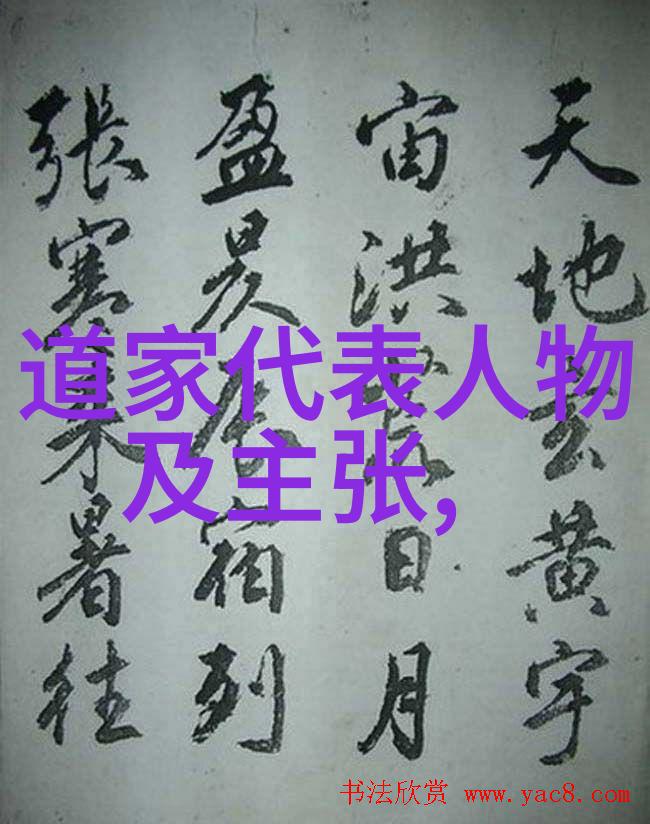 天地玄黄宇
宙洪荒日月
盈昃辰宿列
張寒来暑往
道家代表人物
及主张,
书法欣赏 www.yac8.com